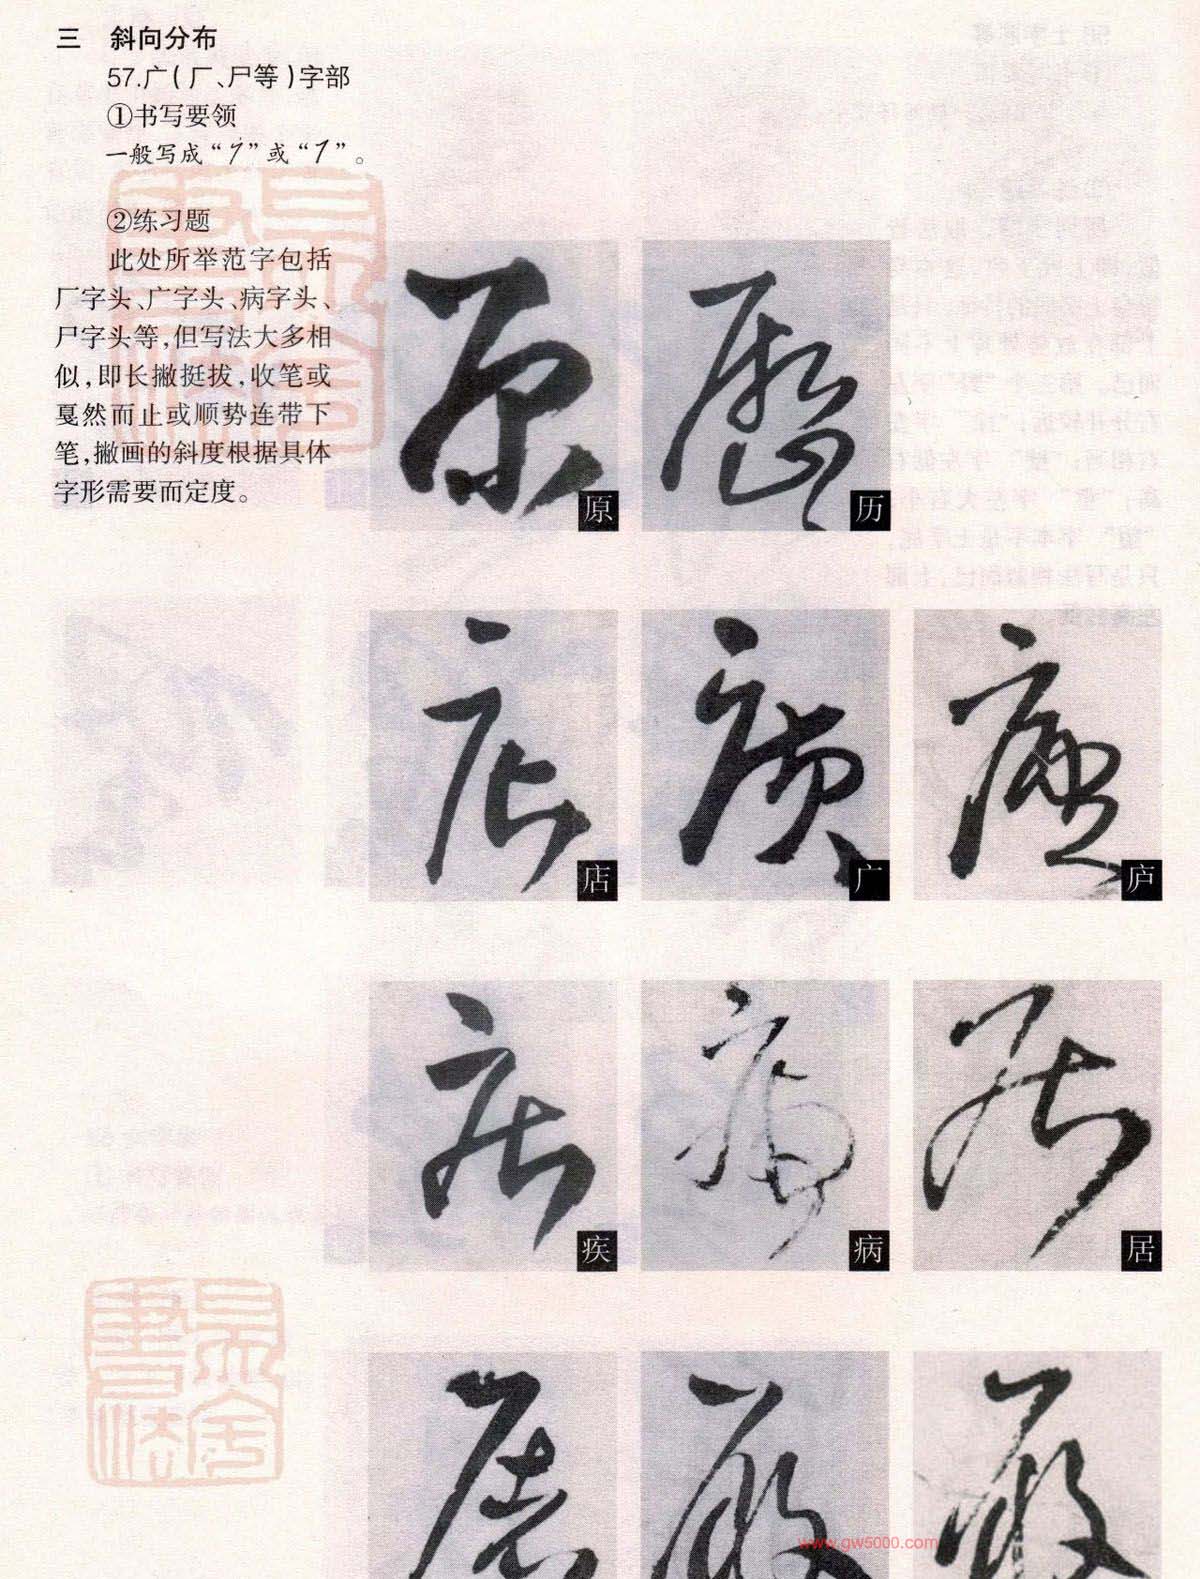 三 斜向分布
57.广(厂、尸等)字部
①书写要领
一般写成“㇇”或“㇇”。
②练习题
此处所举范字包括
厂字头、广字头、病字头、
尸字头等,但写法大多相
似,即长撇挺拔,收笔或
戛然而止或顺势连带下
笔,撇画的斜度根据具体
字形需要而定度。
原
历
店
广
庐
疾
病
居
www.gw5000.com